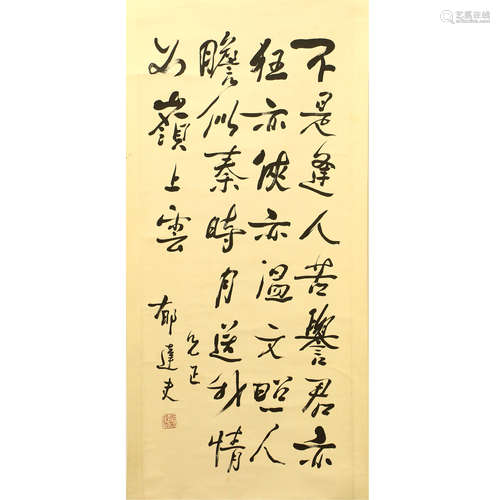 不是逢人苦譽君亦
狂亦俠亦温文照人
膽似秦時月送我情
如嶺上雲
兄正
郁達夫
艺狐在线